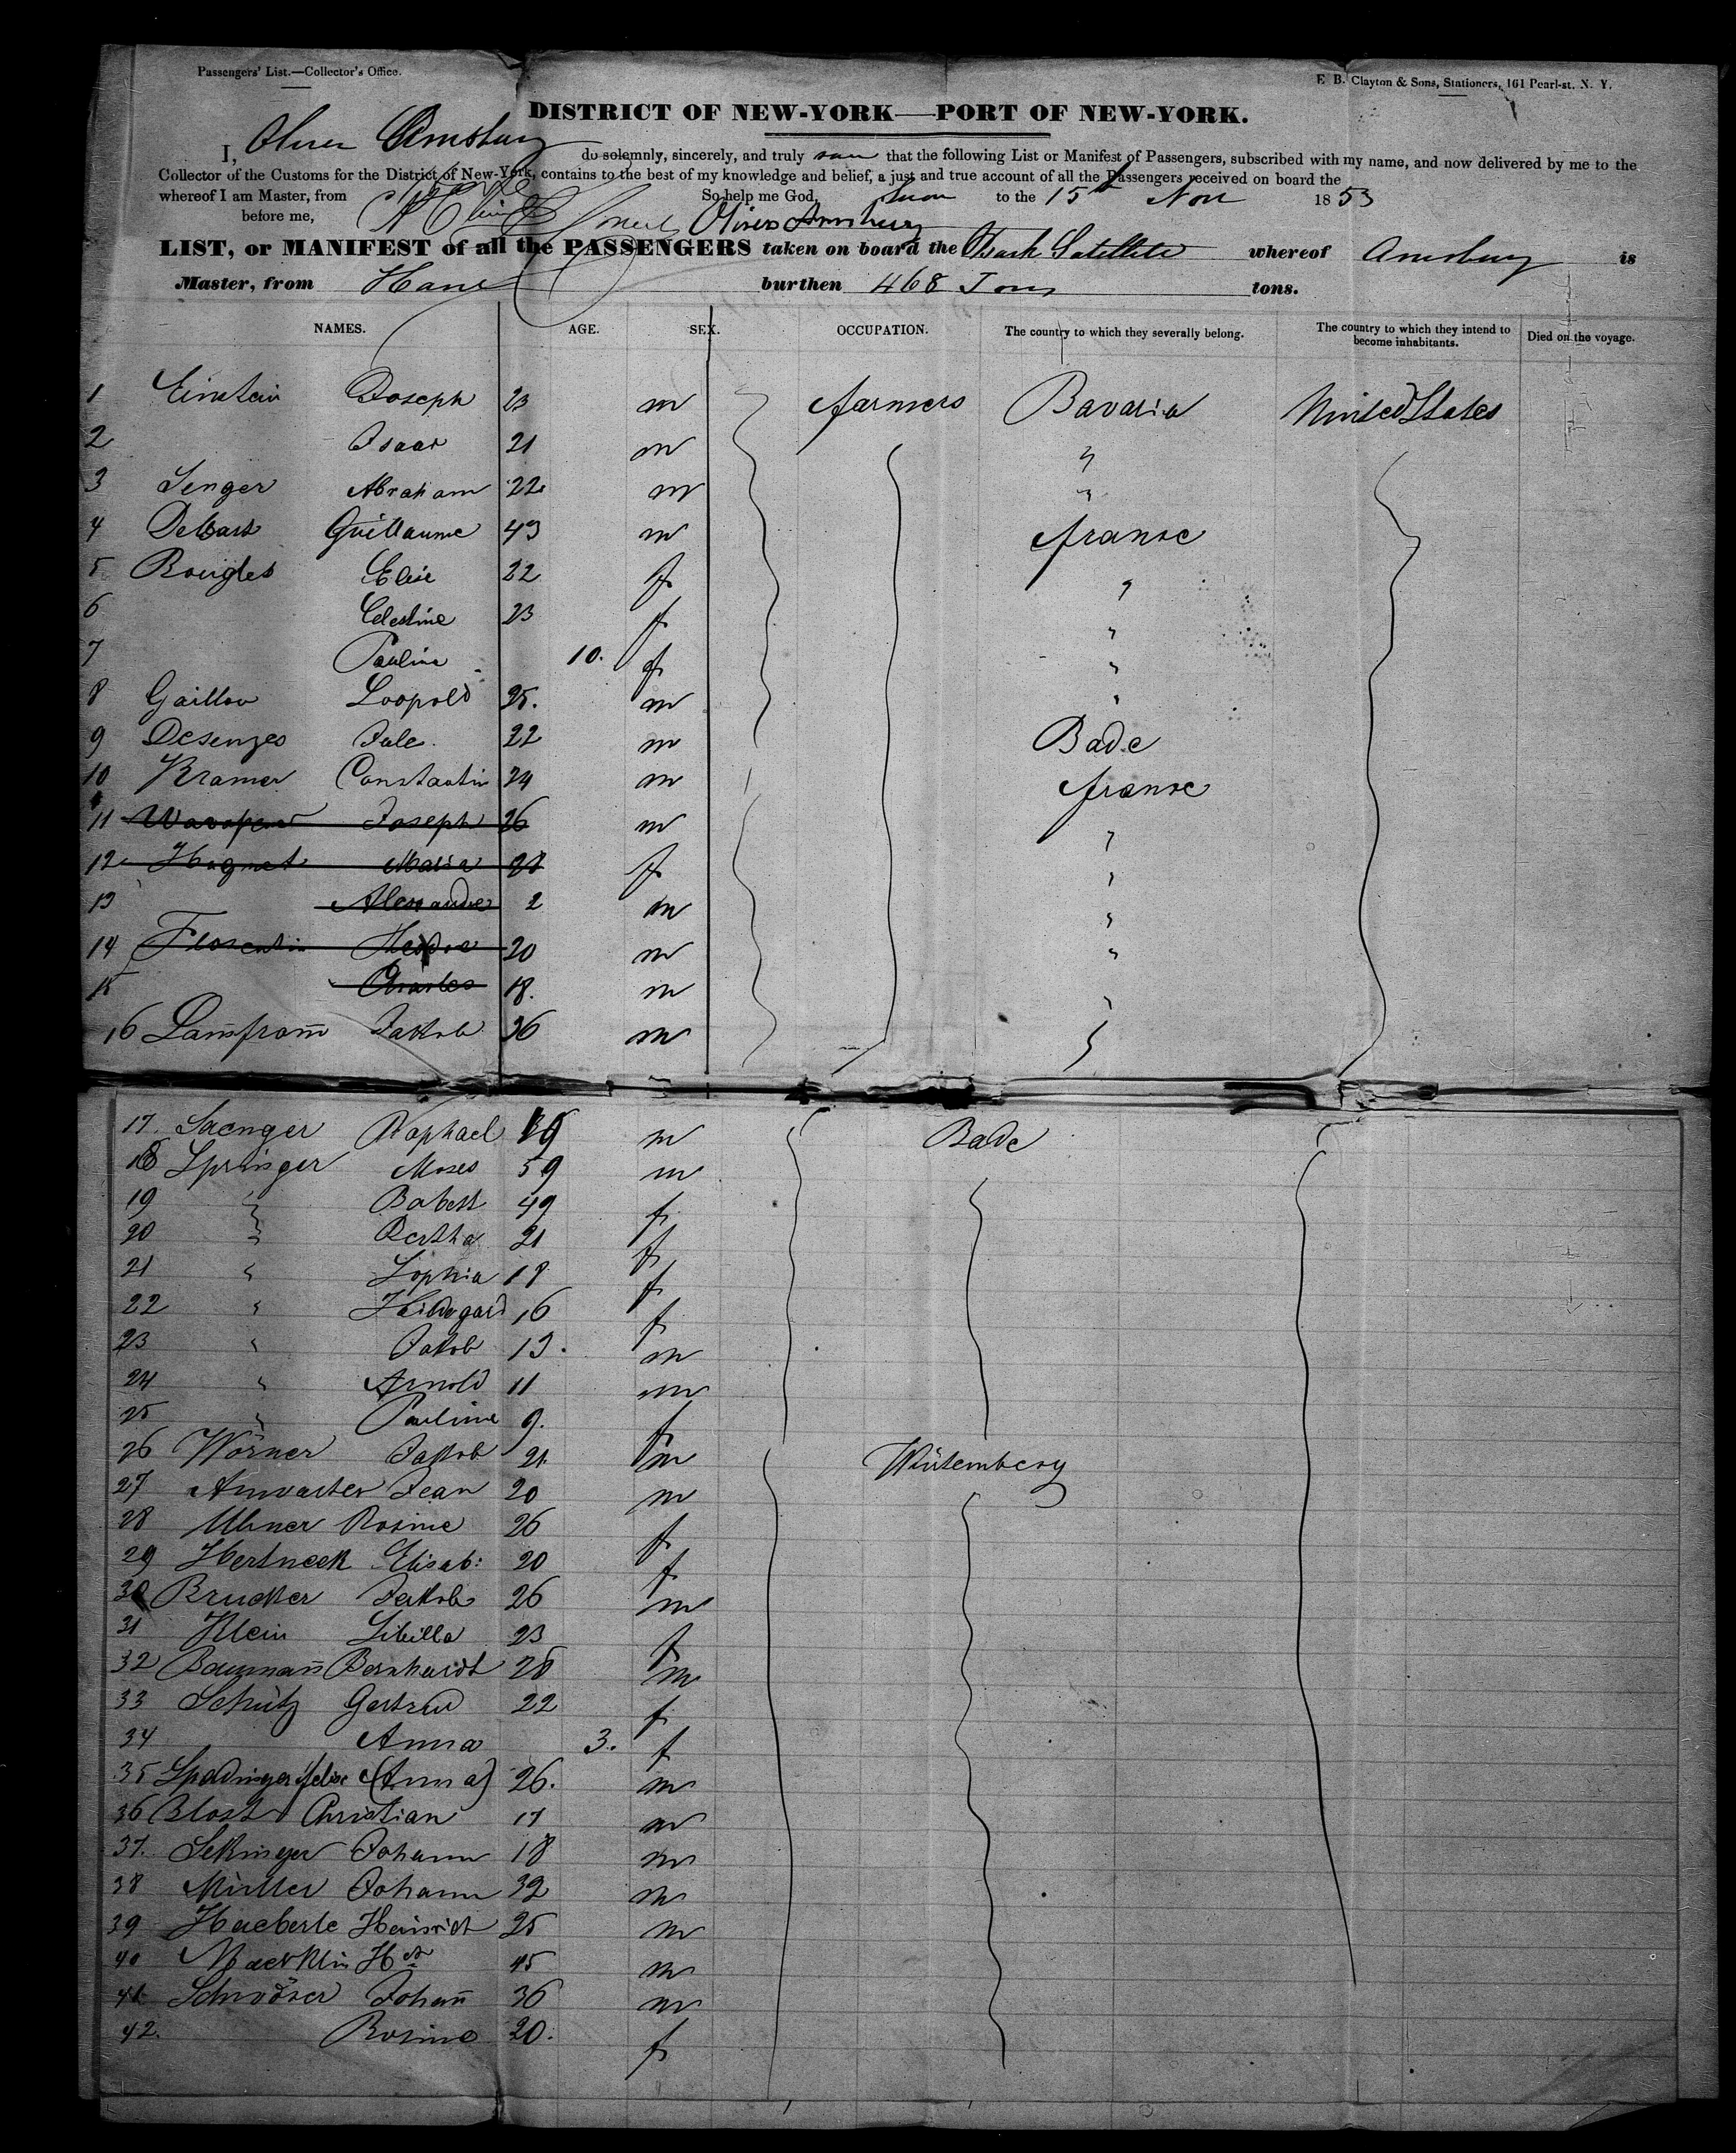 Passengers' List.—Collector's Office.
E. B. Clayton & Sons, Stationers, 161 Pearl-st. N. Y.
DISTRICT OF NEW-YORK—PORT OF NEW-YORK.
I, Oliver Amsbury do solemnly, sincerely, and truly that the following List or Manifest of Passengers, subscribed with my name, and now delivered by me to the
Collector of the Customs for the District of New-York, contains to the best of my knowledge and belief, a just and true account of all the Passengers received on board the
whereof I am Master, from So help me God, to the 15th Nov 1853
before me, Oliver Amsbury
LIST, or MANIFEST of all the PASSENGERS taken on board the Bark Satellite whereof Amsbury is
Master, from burthen 468 Tons tons.
NAMES. AGE. SEX. OCCUPATION. The country to which they severally belong. The country to which they intend to become inhabitants. Died on the voyage.
1 Einstein Joseph 23 m farmers Bavaria United States
2 Isaac 21 m "
3 Senger Abraham 22 m "
4 Guillaume 43 m france
5 Elise 22 f "
6 Celestine 23 f "
7 Pauline 10. f "
8 Leopold 25. m "
9 Desenzes Jule. 22 m Bade
10 Kramer Constantin 24 m france
11 Joseph 26 m "
12 Hugnet Maria 28 f "
13 Alexandre 2 m "
14 Florentin 20 m "
15 Charles 18. m "
16 Lam̄from̄ Jakob 36 m "
17. Saenger Raphael 19 m Bade
18 Springer Moses 59 m
19 " Babett 49 f
20 " Bertha 21 f
21 " Sophia 18 f
22 " Hildegard 16 f
23 " Jakob 13. m
24 " Arnold 11 m
25 " Pauline 9. f
26 Wörner Jakob 21. m Würtemberg
27 Anwarter Jean 20 m
28 Ulmer Rosine 26 f
29 Hertneck Elisab: 20 f
30 Brucker Jakob 26 m
31 Klein Sibilla 23 f
32 Bauman̄ Bernhardt 28 m
33 Schütz Gertrud 22 f
34 Anna 3. f
35 Spadinger felix (Anna) 26. m
36 Blost Christian 17 m
37. Sekinger Johann 18 m
38 Müller Johann 32 m
39 Haeberle Heinrich 25 m
40 Macklin Hch 45 m
41 Johan̄ 36 m
42. Rosine 20. f